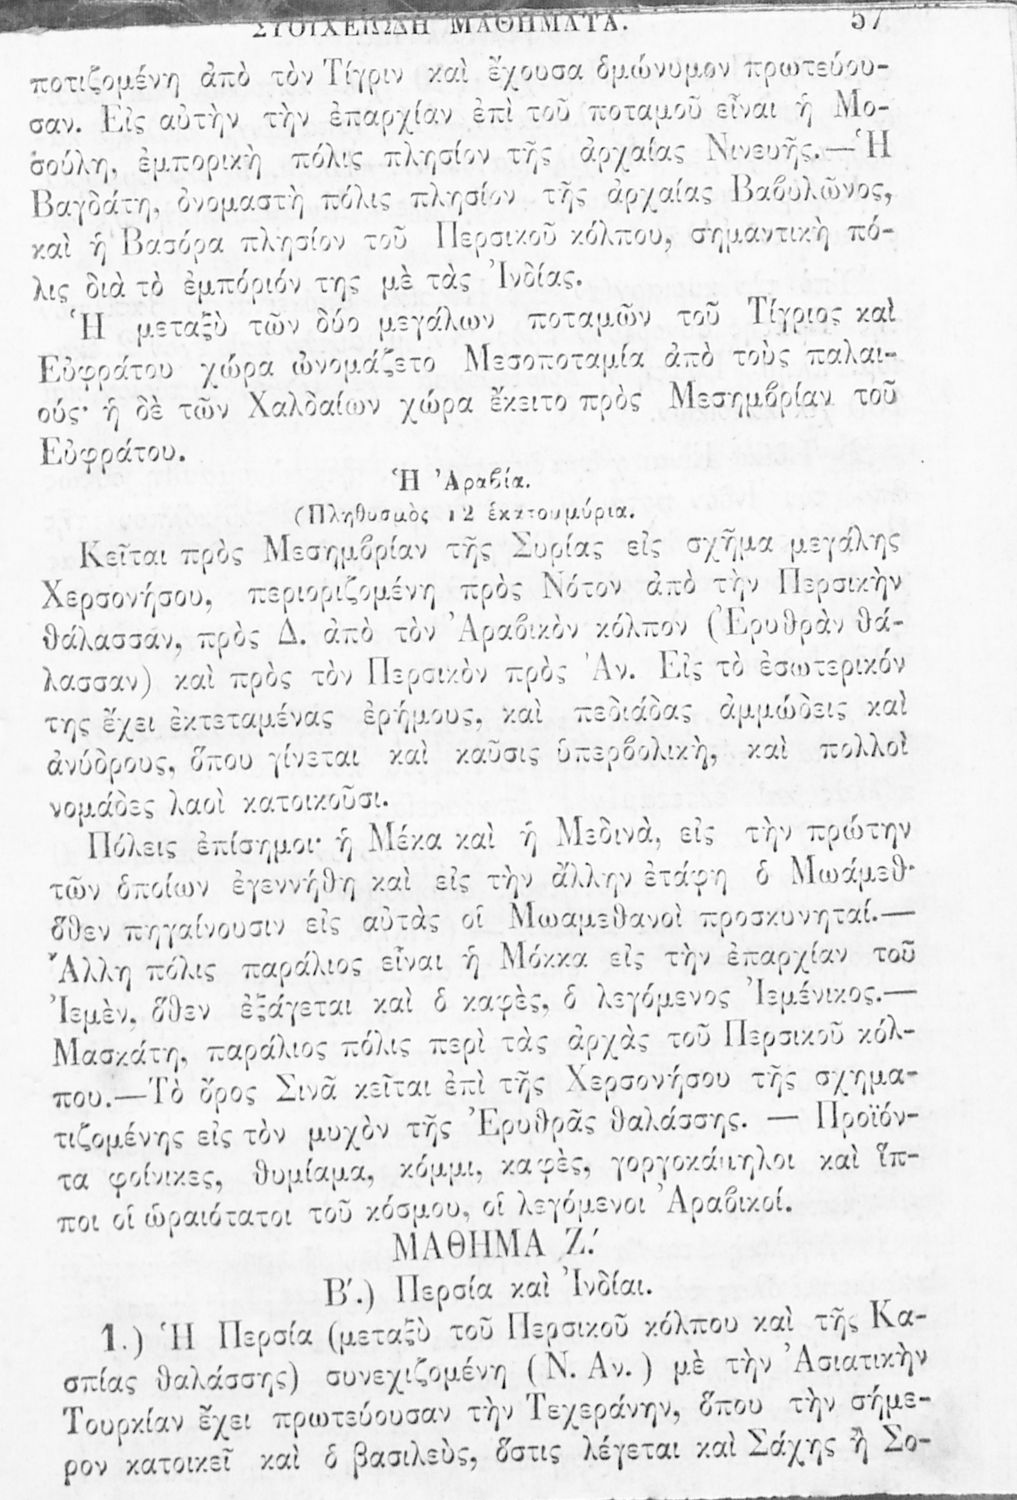 ΣΤΟΙΧΕΙΩΔΗ ΜΑΘΗΜΑΤΑ. 57
ποτιζομένη ἀπὸ τὸν Τίγριν καὶ ἔχουσα ὁμώνυμον πρωτεύου-
σαν. Εἰς αὐτὴν τὴν ἐπαρχίαν ἐπὶ τοῦ ποταμοῦ εἶναι ἡ Μο-
σούλη, ἐμπορικὴ πόλις πλησίον τῆς ἀρχαίας Νινευῆς.—Ἡ
Βαγδάτη, ὀνομαστὴ πόλις πλησίον τῆς ἀρχαίας Βαβυλῶνος,
καὶ ἡ Βασόρα πλησίον τοῦ Περσικοῦ κόλπου, σημαντικὴ πό-
λις διὰ τὸ ἐμπόριόν της μὲ τὰς Ἰνδίας.
Ἡ μεταξὺ τῶν δύο μεγάλων ποταμῶν τοῦ Τίγριος καὶ
Εὐφράτου χώρα ὠνομάζετο Μεσοποταμία ἀπὸ τοὺς παλαι-
ούς· ἡ δὲ τῶν Χαλδαίων χώρα ἔκειτο πρὸς Μεσημβρίαν τοῦ
Εὐφράτου.
Ἡ Ἀραβία.
(Πληθυσμὸς 12 ἑκατομύρια.
Κεῖται πρὸς Μεσημβρίαν τῆς Συρίας εἰς σχῆμα μεγάλης
Χερσονήσου, περιοριζομένη πρὸς Νότον ἀπὸ τὴν Περσικὴν
θάλασσαν, πρὸς Δ. ἀπὸ τὸν Ἀραβικὸν κόλπον (Ἐρυθρὰν θά-
λασσαν) καὶ πρὸς τὸν Περσικὸν πρὸς Ἀν. Εἰς τὸ ἐσωτερικόν
της ἔχει ἐκτεταμένας ἐρήμους, καὶ πεδιάδας ἀμμώδεις καὶ
ἀνύδρους, ὅπου γίνεται καὶ καῦσις ὑπερβολικὴ, καὶ πολλοὶ
νομάδες λαοὶ κατοικοῦσι.
Πόλεις ἐπίσημοι· ἡ Μέκα καὶ ἡ Μεδινὰ, εἰς τὴν πρώτην
τῶν ὁποίων ἐγεννήθη καὶ εἰς τὴν ἄλλην ἐτάφη ὁ Μωάμεθ·
ὅθεν πηγαίνουσιν εἰς αὐτὰς οἱ Μωαμεθανοὶ προσκυνηταί.—
Ἄλλη πόλις παράλιος εἶναι ἡ Μόκκα εἰς τὴν ἐπαρχίαν τοῦ
Ἰεμὲν, ὅθεν ἐξάγεται καὶ ὁ καφὲς, ὁ λεγόμενος Ἰεμένικος.—
Μασκάτη, παράλιος πόλις περὶ τὰς ἀρχὰς τοῦ Περσικοῦ κόλ-
που.—Τὸ ὄρος Σινᾶ κεῖται ἐπὶ τῆς Χερσονήσου τῆς σχημα-
τιζομένης εἰς τὸν μυχὸν τῆς Ἐρυθρᾶς θαλάσσης. — Προϊόν-
τα φοίνικες, θυμίαμα, κόμμι, καφὲς, γοργοκάμηλοι καὶ ἵπ-
ποι οἱ ὡραιότατοι τοῦ κόσμου, οἱ λεγόμενοι Ἀραβικοί.
ΜΑΘΗΜΑ Ζ΄.
Β΄.) Περσία καὶ Ἰνδίαι.
1.) Ἡ Περσία (μεταξὺ τοῦ Περσικοῦ κόλπου καὶ τῆς Κα-
σπίας θαλάσσης) συνεχιζομένη (Ν. Αν.) μὲ τὴν Ἀσιατικὴν
Τουρκίαν ἔχει πρωτεύουσαν τὴν Τεχεράνην, ὅπου τὴν σήμε-
ρον κατοικεῖ καὶ ὁ βασιλεὺς, ὅστις λέγεται καὶ Σάχης ἢ Σο-